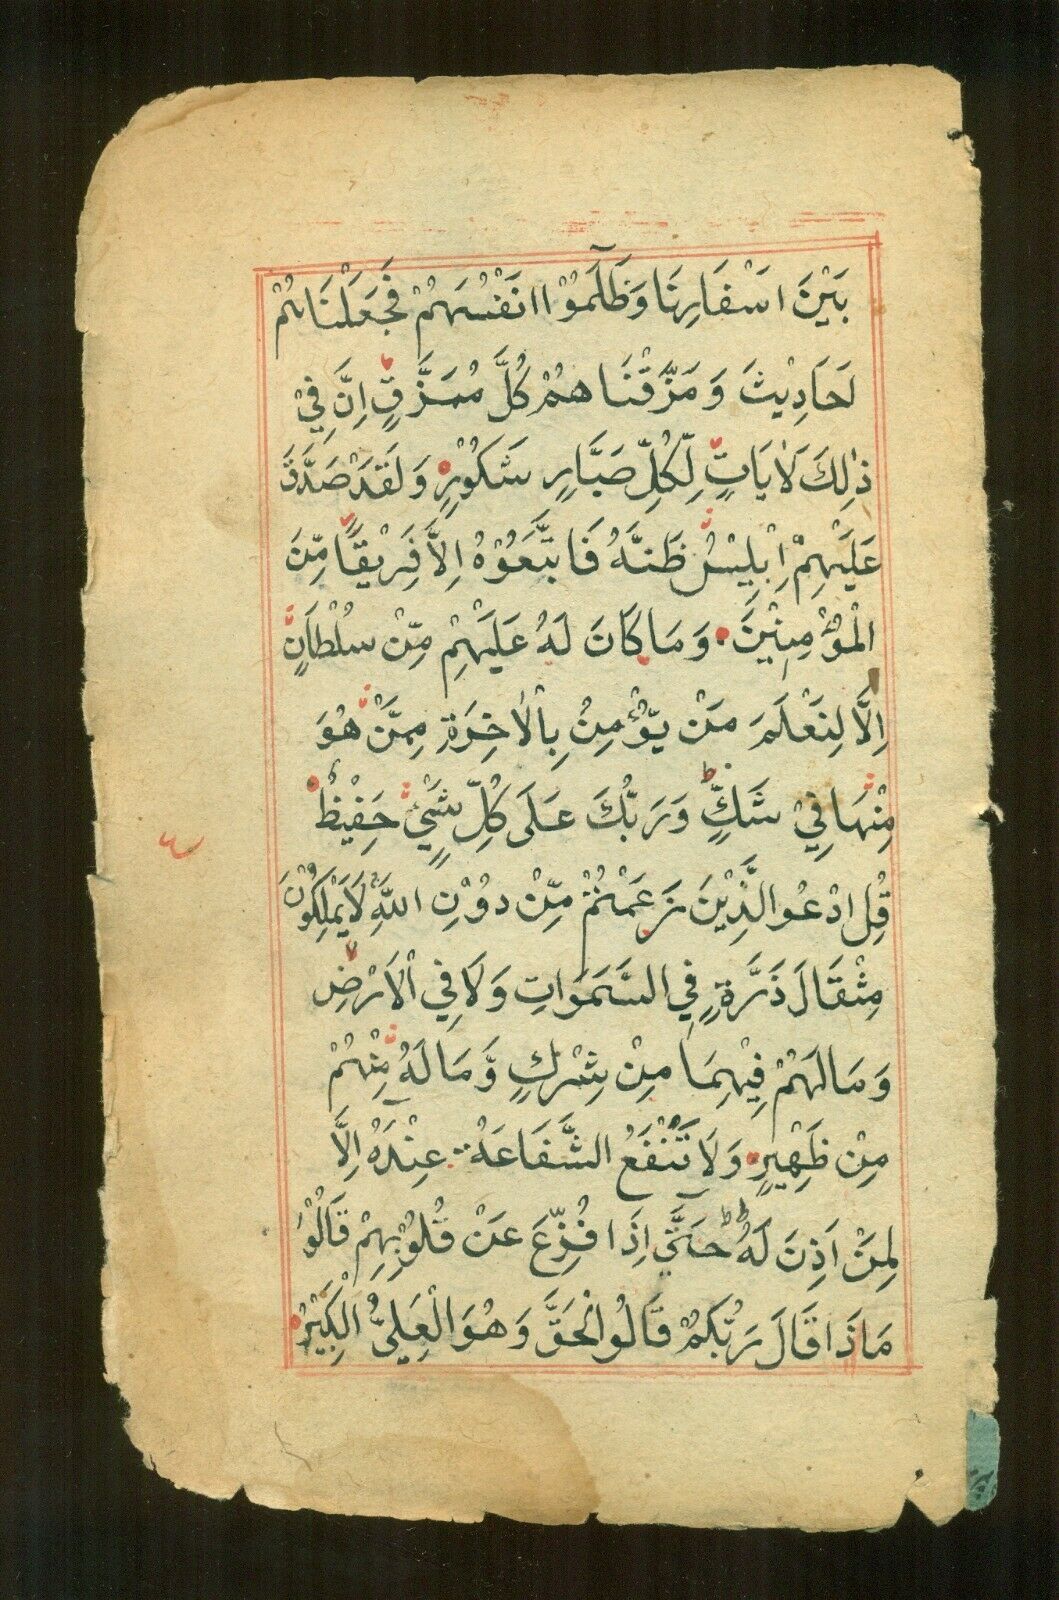 بَيْنَ اَسْفَارِنَا وَظَلَمُوْا اَنْفُسَهُمْ فَجَعَلْنَاهُمْ
اَحَادِيْثَ وَمَزَّقْنَاهُمْ كُلَّ مُمَزَّقٍ اِنَّ فِيْ
ذٰلِكَ لَاٰيَاتٍ لِّكُلِّ صَبَّارٍ شَكُوْرٍ وَلَقَدْ صَدَّقَ
عَلَيْهِمْ اِبْلِيْسُ ظَنَّهُ فَاتَّبَعُوْهُ اِلَّا فَرِيْقًا مِّنَ
الْمُؤْمِنِيْنَ وَمَا كَانَ لَهُ عَلَيْهِمْ مِّنْ سُلْطَانٍ
اِلَّا لِنَعْلَمَ مَنْ يُّؤْمِنُ بِالْاٰخِرَةِ مِمَّنْ هُوَ
مِنْهَا فِيْ شَكٍّ وَرَبُّكَ عَلَى كُلِّ شَيْءٍ حَفِيْظٌ
قُلِ ادْعُوا الَّذِيْنَ زَعَمْتُمْ مِّنْ دُوْنِ اللّٰهِ لَا يَمْلِكُوْنَ
مِثْقَالَ ذَرَّةٍ فِي السَّمَوَاتِ وَلَا فِي الْاَرْضِ
وَمَا لَهُمْ فِيْهِمَا مِنْ شِرْكٍ وَّمَا لَهُ مِنْهُمْ
مِنْ ظَهِيْرٍ وَلَا تَنْفَعُ الشَّفَاعَةُ عِنْدَهُ اِلَّا
لِمَنْ اَذِنَ لَهُ حَتَّىٰ اِذَا فُزِّعَ عَنْ قُلُوْبِهِمْ قَالُوْا
مَاذَا قَالَ رَبُّكُمْ قَالُوا الْحَقَّ وَهُوَ الْعَلِيُّ الْكَبِيْرُ